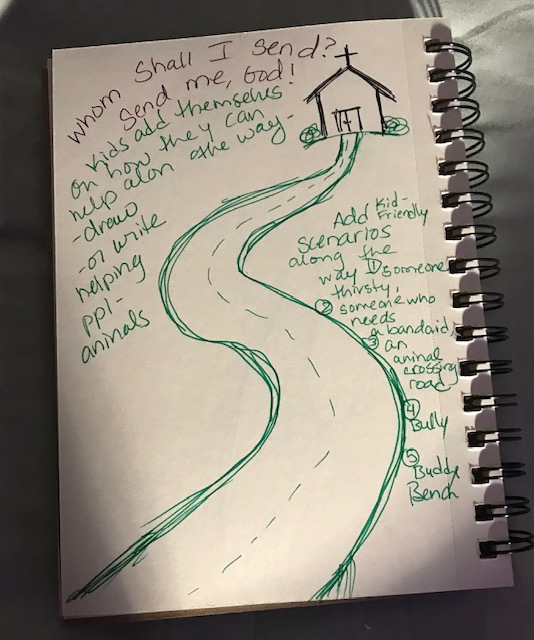 Whom Shall I send?
Send me, God!
Kids add themselvs
on how they can
help alon othe way-
-draw
-or write
helping
ppl-
animals
Add Kid-
Friendly
scenarios
along the
way ① someone
thirsty,
② someone who
needs
a bandaid,
③ an
animal
crossing
road
④
Bully
⑤
Buddy
Bench